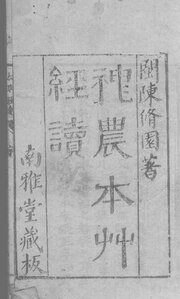 閩陳脩園著
神農本艸
經讀
南雅堂藏板